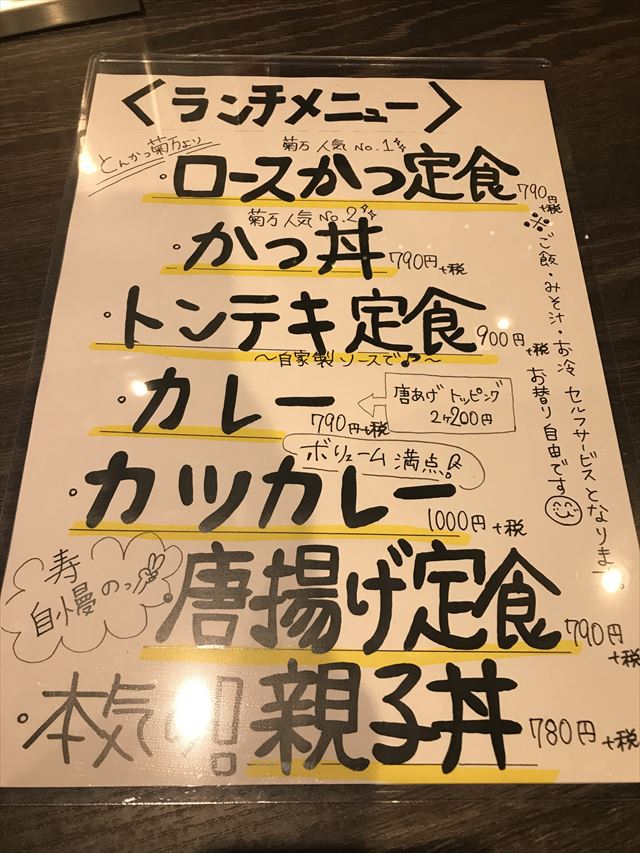 〈ランチメニュー〉
とんかつ菊万より
菊万人気No.1
・ロースかつ定食 790円+税
菊万人気No.2
・かつ丼 790円+税
・トンテキ定食 900円+税
～自家製ソースで♪～
・カレー 790円+税
唐あげトッピング
2ヶ200円
ボリューム満点!
・カツカレー 1000円+税
寿
自慢のっ
・唐揚げ定食 790円+税
・本気の!親子丼 780円+税
※ご飯・みそ汁・お冷 セルフサービスとなります。
お替り自由です